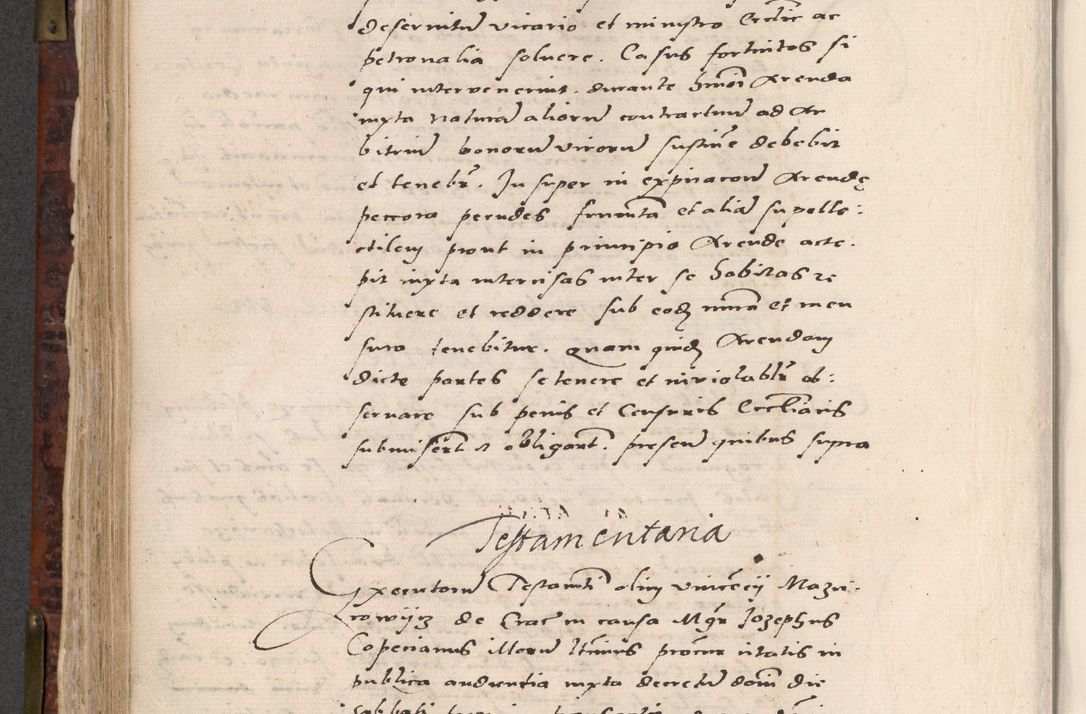 deservitur vicario et ministro Ecclie ac
petronalia solvere. Casus fortuitos si
qui intervenerint. durante hmōi Arenda
iuxta naturā aliorū contractuum ad Ar
bitriū bonorū virorū sustinē debebit
et tenebr. In super in expiracōne Arendę
peccora pecudes frumta et aliā supelle:
ctilem prout in principio Arende acce:
pit iuxta intercisas inter se habitas re
stituere et reddere sub eodē nūm et men
sura tenebitur. quam quidē Arendam
dicte partes se tenere et inviolablr ob:
servare sub penis et Censuris Ecclīaris
submisert et obligart. presen quibus supra
Testamentaria
Executorū Testamti olim Vincēcii Mazu:
rowijcz de Crac in causa Mgr Jozephus
Copecianus illorū ltimus procur citatis in
publica audientia iuxta decretū domī die
sabbati